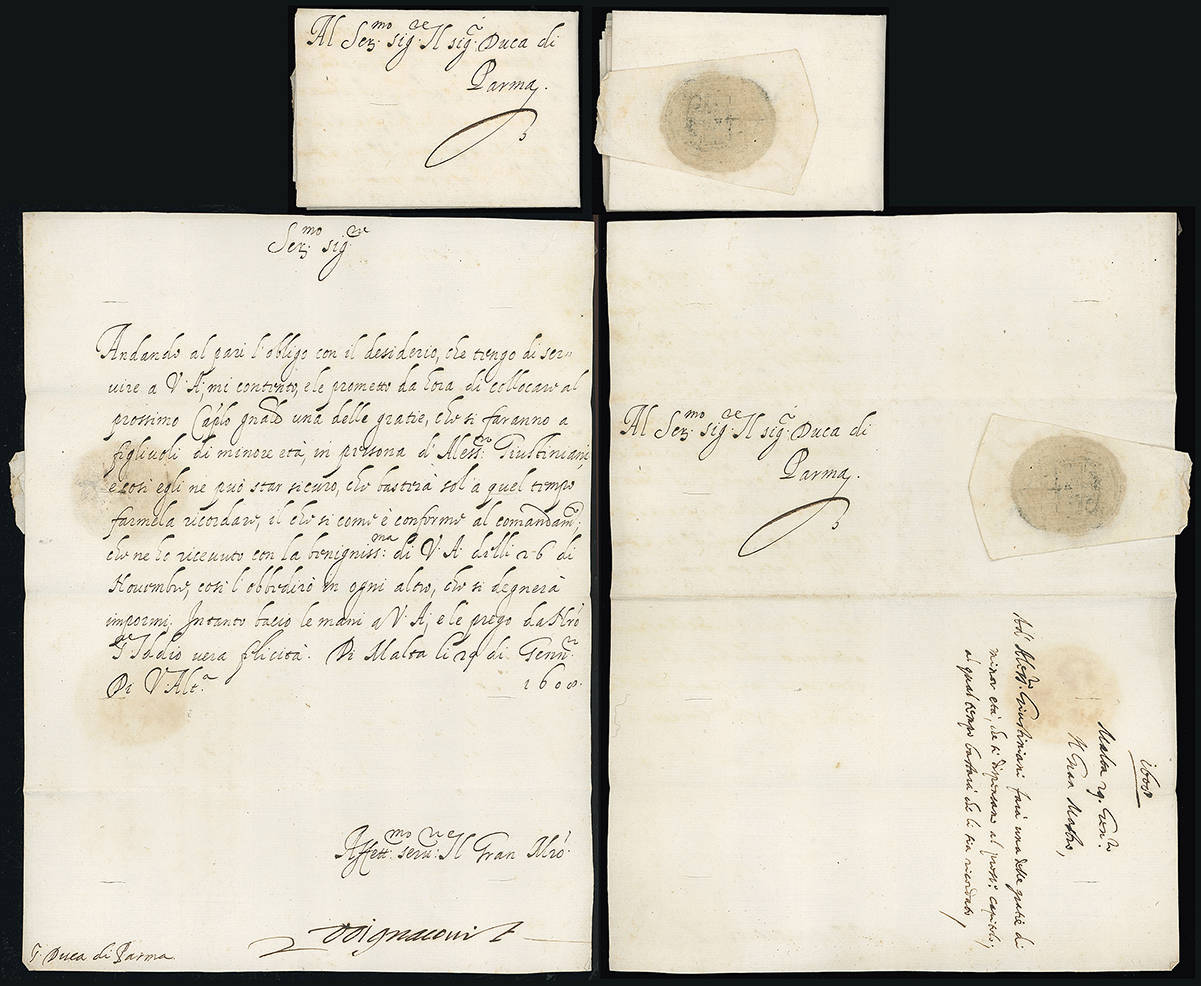 Al Ser.mo sig.re Il sig.r Duca di
Parma.
Ser.mo sig.re
Andando al pari l'obligo con il desiderio, che tengo di ser=
uire a V. A; mi contento, e le prometto da hora di collocare al
prossimo Cap.lo gnãle una delle gratie, che si faranno a
figliuoli di minore età, in persona d'Aless.o Giustiniani,
e così egli ne può star sicuro, che basterà sol' a quel tempo
farmela ricordare, il che si come è conforme al comandam.to
che ne ho riceuuto con la benigniss.ma di V. A. delli 26 di
Nouembre, così l'obbedirò in ogni altro, che si degnerà
impormi; Intanto bacio le mani a V. A; e le prego da Nrõ
S.re Iddio uera felicità. Di Malta li 29 di Genn.o
Di V. Alt.a 1608.
Affett.mo seru.re Il Gran Mrõ.
S. Duca di Parma
Al Ser.mo sig.re Il sig.r Duca di
Parma.
1608
Malta 29. Genn.ro
Il Gran Mastro,
Ad Aless.ro Giustiniani farà una delle gratie di
minor età, che si dispensano al pross.o capitolo,
al qual tempo basterà che li sia ricordato,